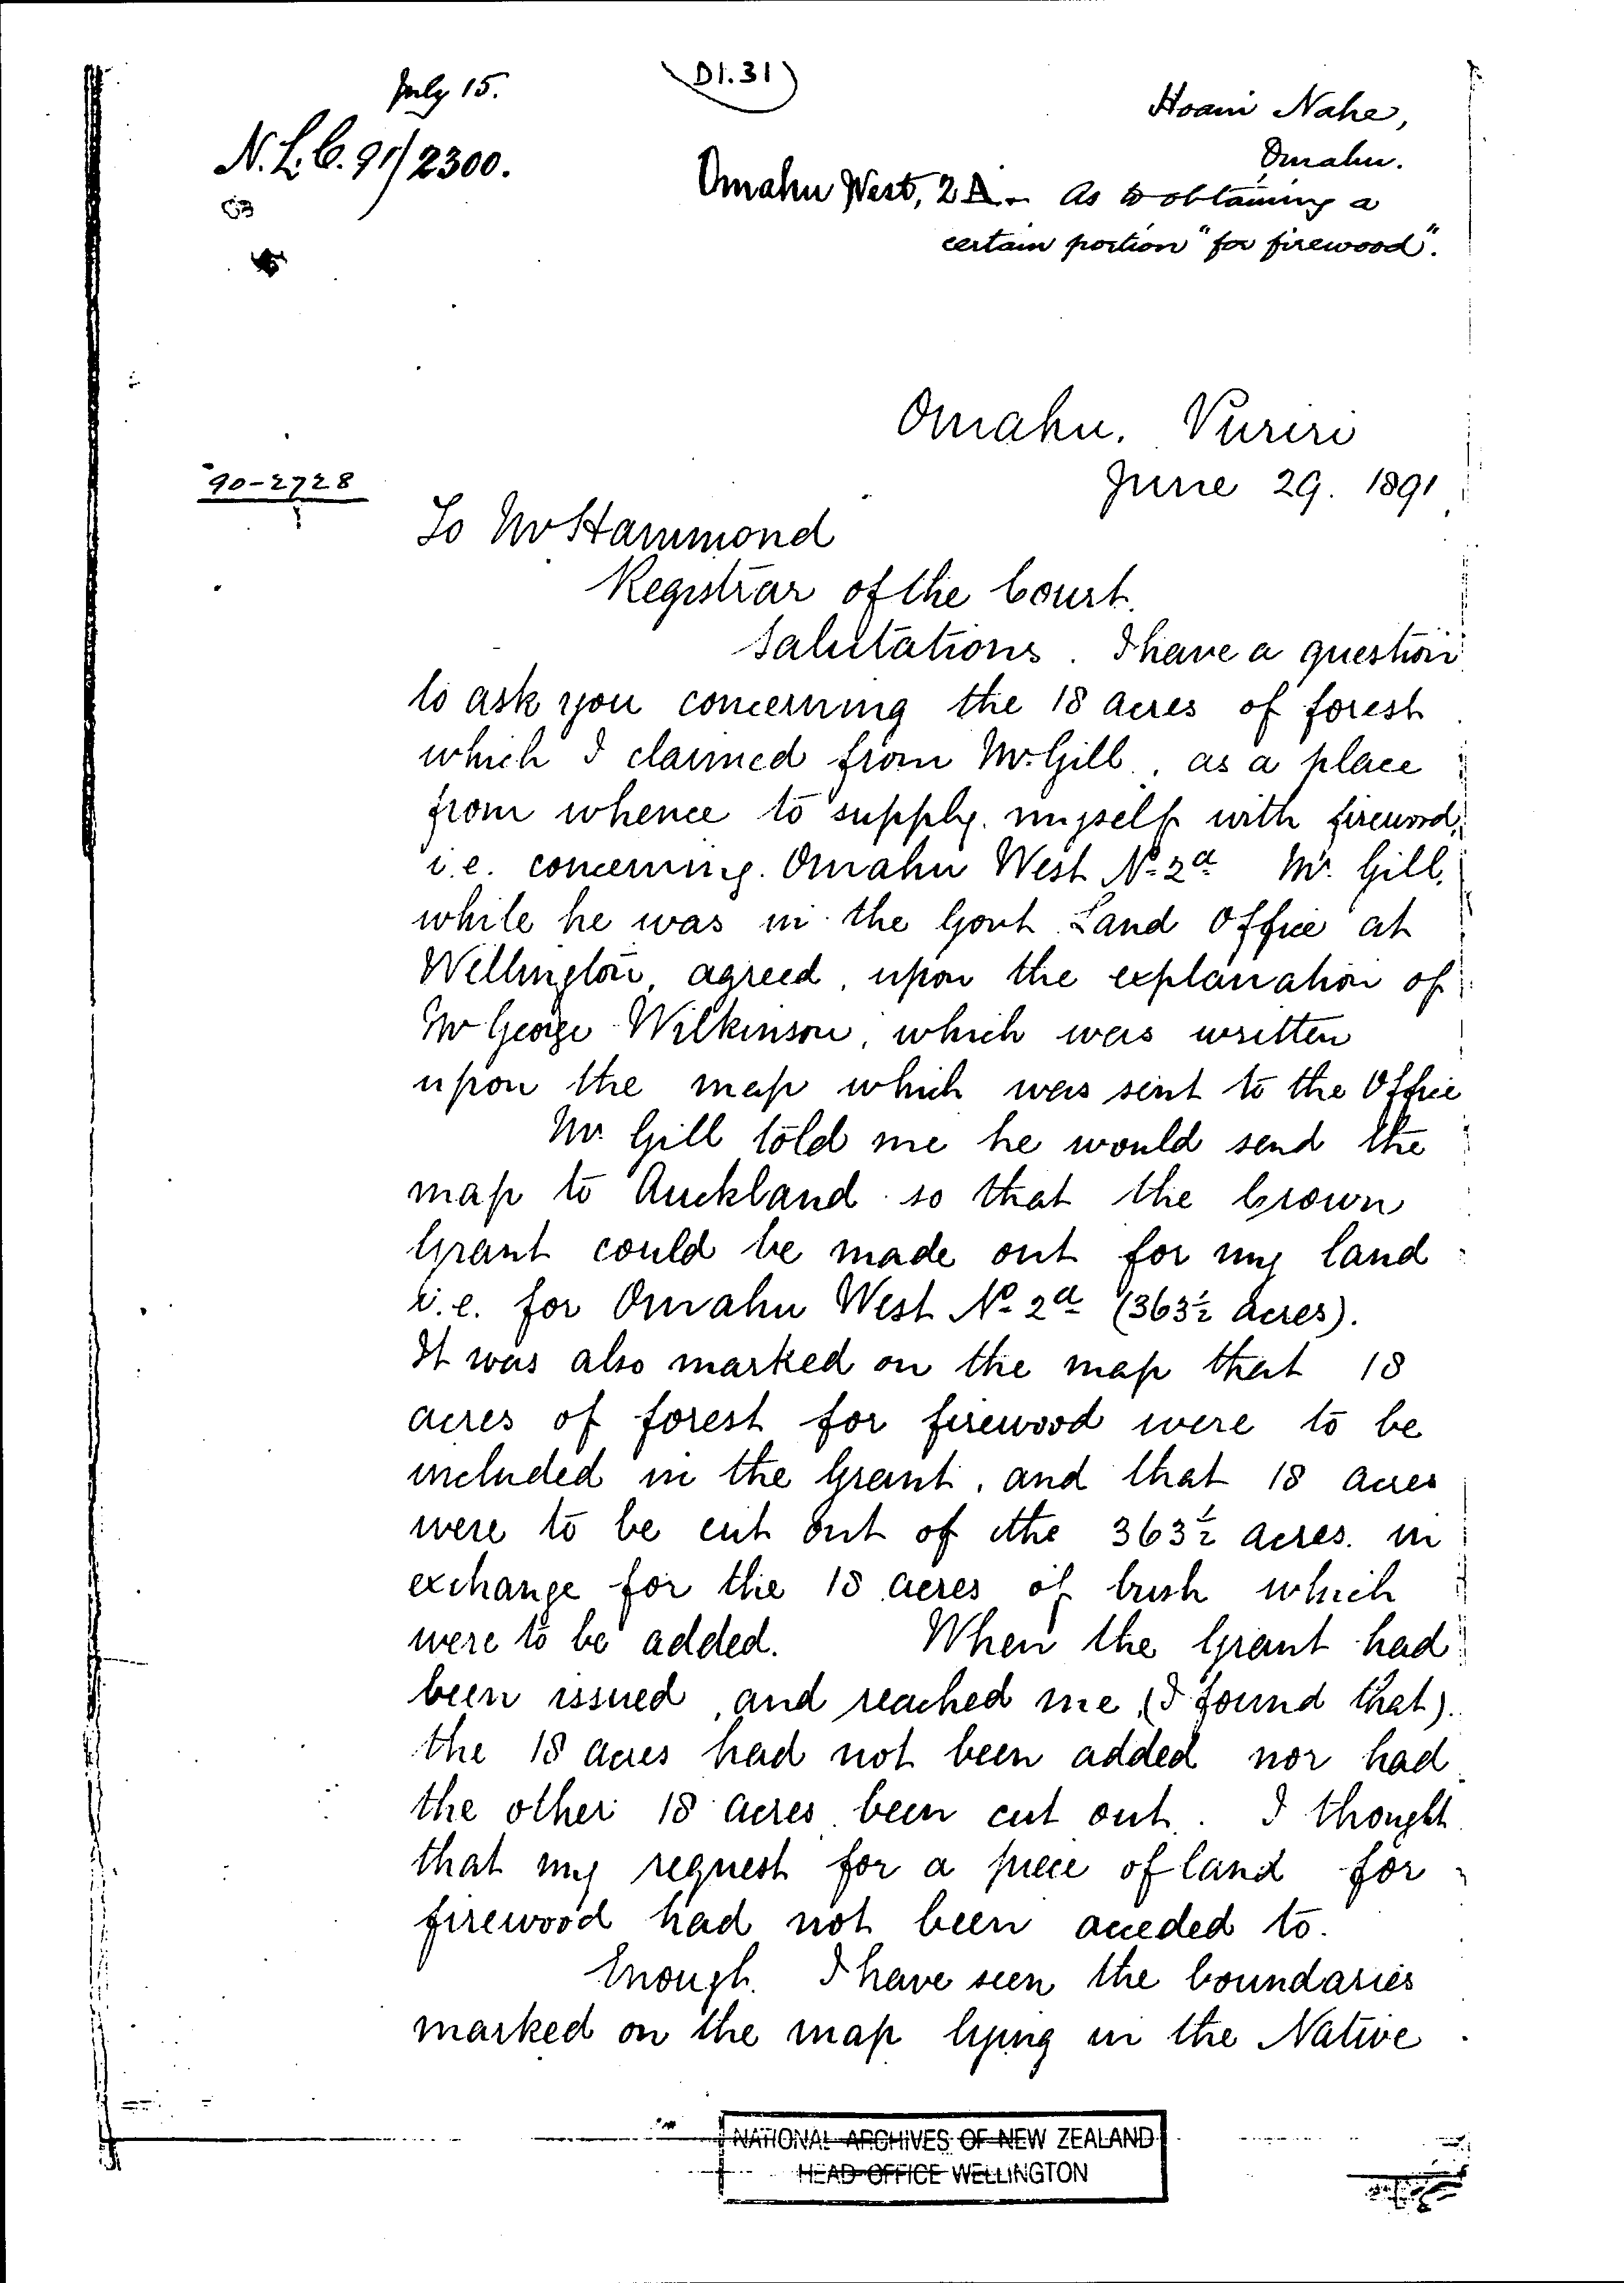 July 15.
D1.31
N.L.C. 91/2300.
Hoani Nahe,
Omahu.
Omahu West, 2A. As to obtaining a
certain portion "for firewood".
Omahu. Puriri
June 29. 1891
90-2728
To Mr Hammond
Registrar of the Court.
Salutations. I have a question
to ask you concerning the 18 acres of forest
which I claimed from Mr. Gill, as a place
from whence to supply myself with firewood,
i.e. concerning Omahu West No 2a Mr. Gill,
while he was in the Govt Land Office at
Wellington, agreed, upon the explanation of
Mr George Wilkinson, which was written
upon the map which was sent to the Office
Mr. Gill told me he would send the
map to Auckland so that the Crown
Grant could be made out for my land
i.e. for Omahu West No 2a (363½ acres).
It was also marked on the map that 18
acres of forest for firewood were to be
included in the Grant, and that 18 acres
were to be cut out of the 363½ acres. in
exchange for the 18 acres of bush which
were to be added. When the Grant had
been issued, and reached me, (I found that)
the 18 acres had not been added nor had
the other 18 acres been cut out. I thought
that my request for a piece of land for
firewood had not been acceded to.
Enough. I have seen the boundaries
marked on the map lying in the Native
NATIONAL ARCHIVES OF NEW ZEALAND
HEAD OFFICE WELLINGTON